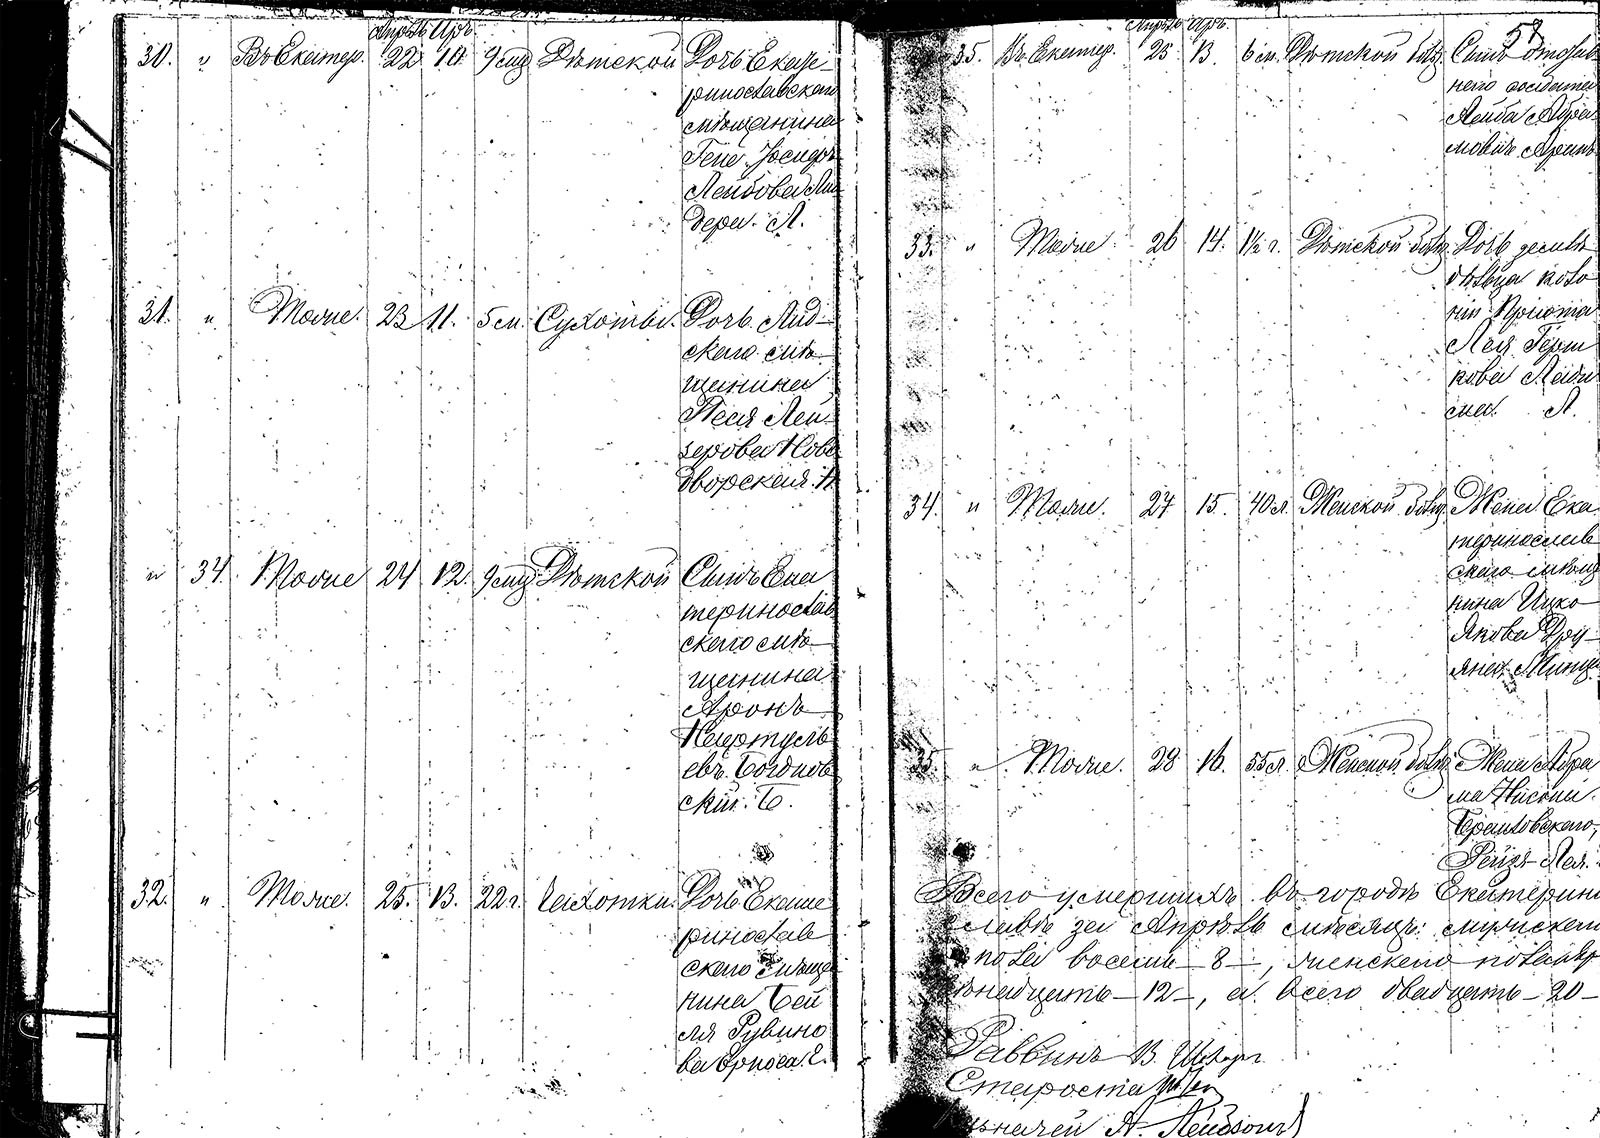 Апрѣль Иръ
30. " Въ Екатер. 22 10 9 мц Дѣтской Дочь Екате-
ринославскаго
мѣщанина
Гене Іосифъ
Лейбова Ли
дера. Л.
31. " Тоже. 23 11. 5 м. Сухоты. Дочь Лид-
скаго мѣ-
щанина
Песя Лей-
зерова Ново
дворская. Н
" 34. Тоже 24 12. 9 мц Дѣтской Сынъ Ека
теринослав
скаго мѣ-
щанина
Аронъ
Нафтуль
евъ Богднов
скій. Б.
32. " Тоже. 25. 13. 22 г. Чахотки. Дочь Екате
ринослав
скаго мѣща
нина Бей
ля Рувино
ва Е.
57
Апрѣль Иръ.
35. Въ Екатер. 25 13. 6 м. Дѣтской бол. Сынъ отстав-
наго солдата
Лейба Абра
мовичъ
33. " Тоже 26 14. 1½ г. Дѣтской бол. Дочь
дѣльца коло
ніи Пріюта
Лея Герш
кова
Л.
34. " Тоже. 27 15. 40 л. Женской бол. Жена Ека
теринослав
скаго мѣща
нина Ицко
Якова Дру-
яна,
35. " Тоже. 28 16. 55 л. Женской бол. Жена Абра
ма Нисона
Рейзя-Лея.
Всего умершихъ въ городѣ Екатерино
славѣ за Апрѣль мѣсяцъ: мужскаго
пола восемь - 8 -, женскаго пола двѣ
надцать - 12 -, а всего двадцать - 20 -
Раввинъ В. Шахоръ
Староста
Казначей А. Лейбзонъ